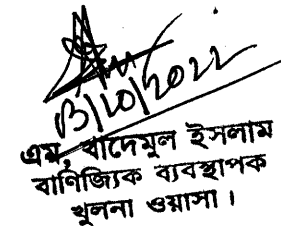 13/10/2022
এম, খাদেমুল ইসলাম
বাণিজ্যিক ব্যবস্থাপক
খুলনা ওয়াসা।